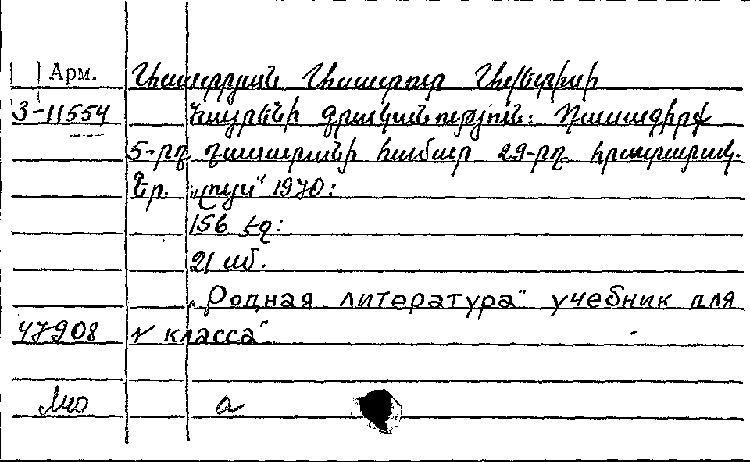 Арм.
3-11554 Հայրենի գրականություն: Դասագիրք
5-րդ դասարանի համար 29-րդ հրատարակ.
Եր. „Լույս“ 1970:
156 էջ:
21 սմ.
„Родная литература“ учебник для
47908 V класса“
а